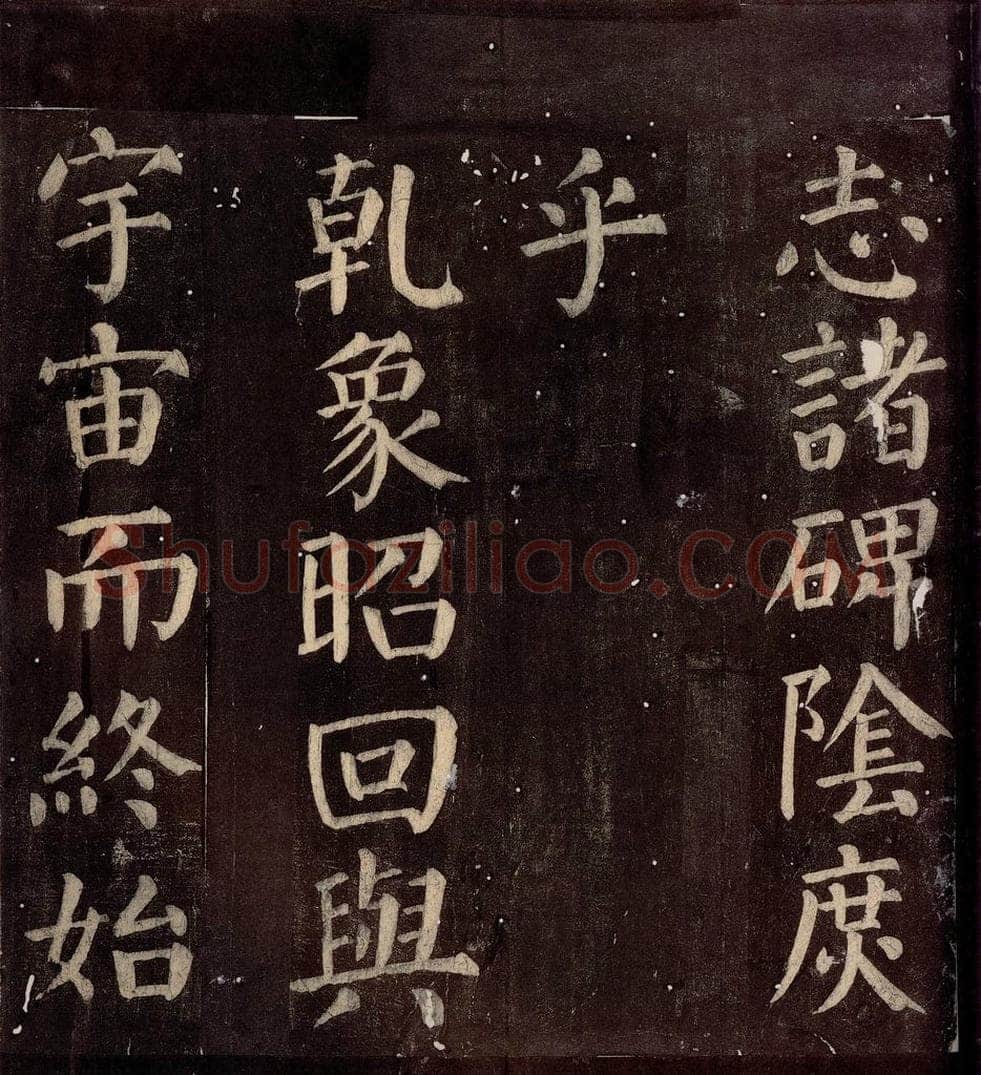 志諸碑陰庶
乎
乹象昭回與
宇宙而終始
Shufaziliao.COM